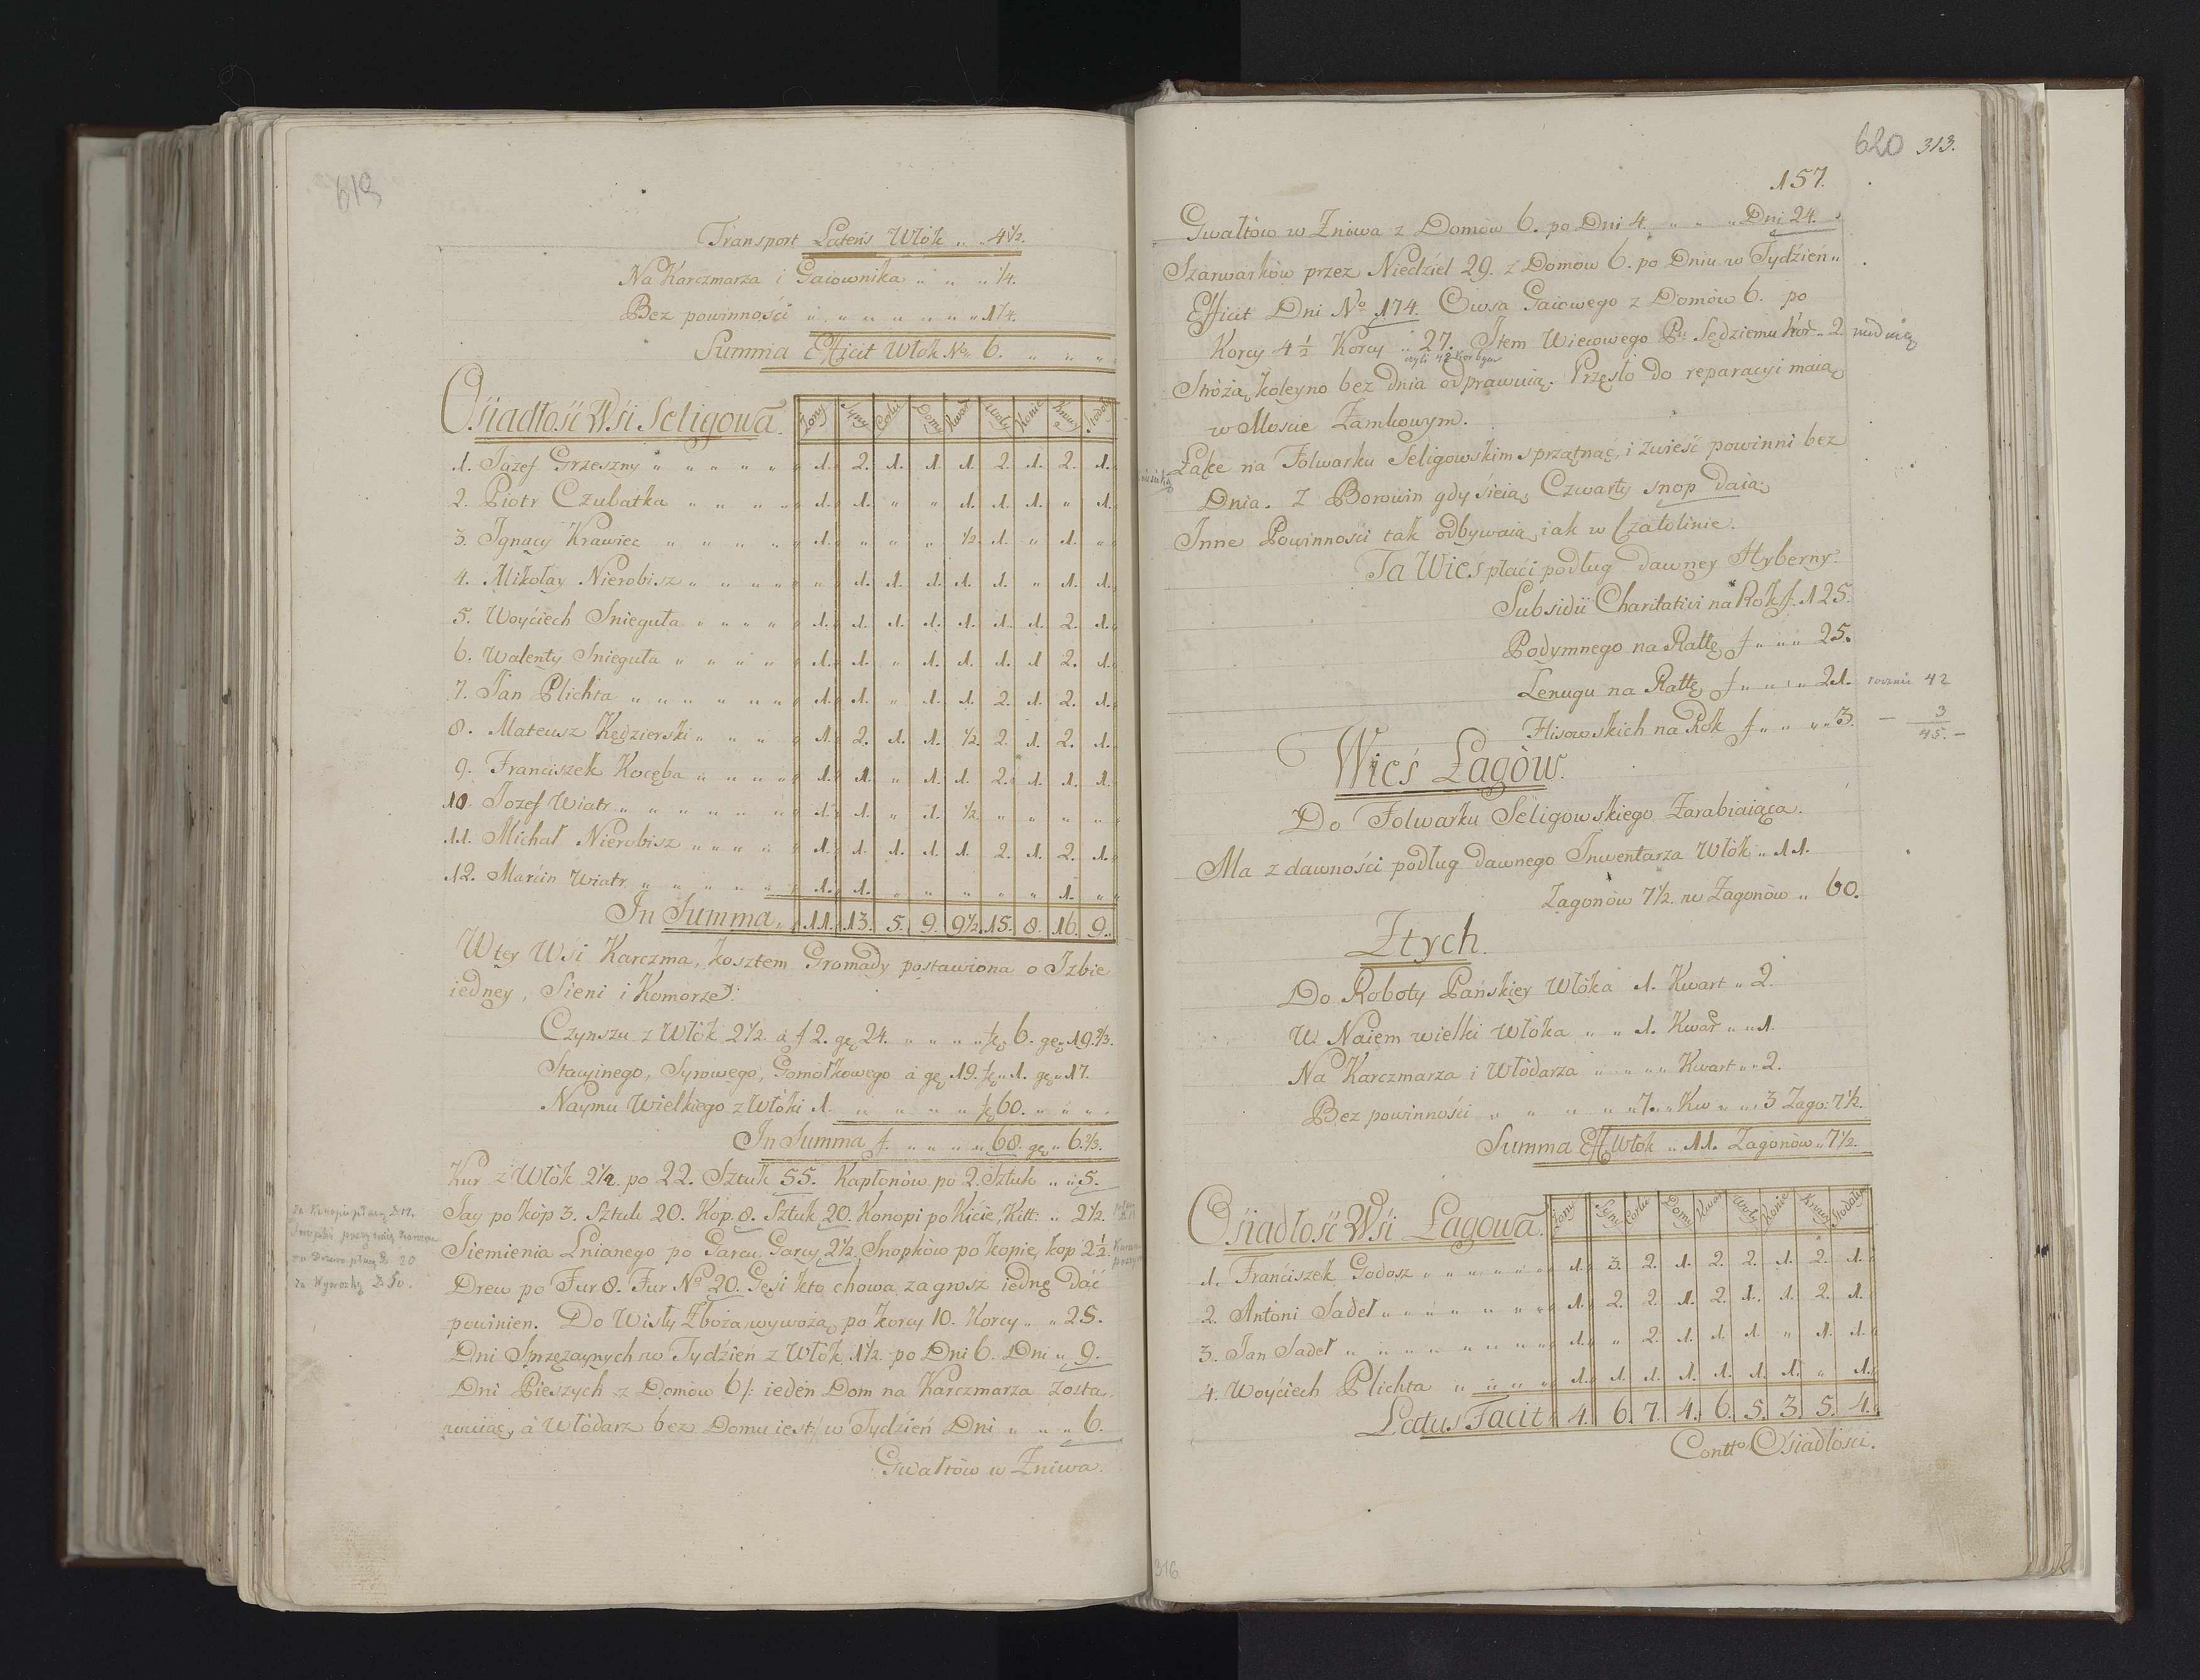 619
Transport Lateris Włók „ „ 4½.
Na Karczmarza i Gaiownika „ „ „ ¼.
Bez powinności „ „ „ „ „ „ „ 1¼.
Summa Efficit Włók No „ 6. „ „ „
Osiadłość Wsi Seligowa. Zony Syny Corki Domy Kwar Woły Konie Krowy Stodoły
1. Jozef Grzeszny „ „ „ „ „ 1. 2. 1. 1. 1. 2. 1. 2. 1.
2. Piotr Czubatka „ „ „ „ 1. 1. „ „ 1. 1. 1. „ 1.
3. Ignacy Krawiec „ „ „ „ 1. „ „ „ ½. 1. „ 1. „
4. Mikołay Nierobisz „ „ „ „ „ 1. 1. 1. 1. 1. „ 1. 1.
5. Woyciech Snieguła „ „ „ „ 1. 1. 1. 1. 1. 1. 1. 2. 1.
6. Walenty Snieguła „ „ „ „ 1. 1. „ 1. 1. 1. 1 2. 1.
7. Jan Plichta „ „ „ „ „ „ 1. 1. „ 1. 1. 2. 1. 2. 1.
8. Mateusz Kędzierski „ „ „ 1. 2. 1. 1. ½. 2. 1. 2. 1.
9. Franciszek Kocęba „ „ „ „ 1. 1. „ 1. 1. 2. 1. 1. 1.
10 Jozef Wiatr „ „ „ „ „ „ 1. 1. „ 1. ½. „ „ „ „
11. Michał Nierobisz „ „ „ „ 1. 1. 1. 1. 1. 2. 1. 2. 1.
12. Marcin Wiatr „ „ „ „ „ 1. 1. „ „ „ „ „ 1. „
In Summa „ 11. 13. 5. 9. 9½. 15. 8. 16. 9.
W tey Wsi Karczma, kosztem Gromady postawiona o Izbie
iedney, Sieni i Komorze.
Czynszu z Włók 2½. à f 2. gę 24. „ „ „ „ fę 6. gę 19.⅔.
Stacyinego, Syrowego, Gomołkowego à gę 19. fę „ 1. gę „ 17.
Naymu Wielkiego z Włóki 1. „ „ „ „ „ fę 60. „ „ „ „
In Summa f. „ „ „ „ 68. gę „ 6.⅔.
Kur z Włók 2½. po 22. Sztuk 55. Kapłonów po 2. Sztuk „ „ 5.
Jay po kóp 3. Sztuk 20. Kóp. 8. Sztuk 20. Konopi po Kicie, Kitt: „ 2½.
Siemienia Lnianego po Garcu, Garcy 2½. Snopków po kopie, kop 2½.
Drew po Fur 8. Fur No 20. Gęsi kto chowa, za grosz iednę dać
powinien. Do Wisły Zboża wywożą, po korcy 10. Korcy „ „ 25.
Dni Sprzężaynych w Tydzień z Włók 1½. po Dni 6. Dni „ 9.
Dni Pieszych z Domów 6/: ieden Dom na Karczmarza zosta„
wuiąc, à Włodarz bez Domu iest/ w Tydzień Dni „ „ „ 6.
Gwałtów w Zniwa.
620 313.
157.
Gwałtów w Zniwa z Domów 6. po Dni 4. „ „ „ Dni 24.
Szarwarków przez Niedziel 29. z Domów 6. po Dniu w Tydzień „
Efficit Dni No 174. Owsa Gaiowego z Domów 6. po
Korcy 4½ Korcy „ 27. Item Wiecowego Pu Sędziemu Kor „ 2.
Stróżą koleyno bez dnia odprawuią. Przęsło do reparacyi maią
w Moscie Zamkowym.
Łąkę na Folwarku Seligowskim sprzątnąć, i zwieść powinni bez
Dnia. Z Borowin gdy sieią, Czwarty snop daią.
Inne Powinności tak odbywaią, iak w Czatolinie.
Ta Wieś płaci podług dawney Hyberny:
Subsidii Charitativi na Rok f. 125.
Podymnego na Rattę f „ „ „ 25.
Lenugu na Rattę f „ „ „ „ 21. rocznie 42
Flisowskich na Rok f „ „ „ „ 3. — 3
45. —
Wieś Łagów.
Do Folwarku Seligowskiego Zarabiaiąca.
Ma z dawności podług dawnego Inwentarza Włók „ 11.
Zagonów 7½. w Zagonów „ 60.
Z tych.
Do Roboty Pańskiey Włóka 1. Kwart „ 2.
W Naiem wielki Włóka „ „ 1. Kwar „ „ 1.
Na Karczmarza i Włodarza „ „ „ „ Kwart „ „ 2.
Bez powinności „ „ „ „ „ 7. „ Kw „ „ 3 Zago: 7½.
Summa Eff Włók „ 11. Zagonów „ 7½.
Osiadłość Wsi Łagowa. Zony Syny Corki Domy Kwar Woły Konie Krowy Stodoły
1. Franciszek Godosz „ „ „ „ „ „ 1. 3. 2. 1. 2. 2. 1. 2. 1.
2. Antoni Sadeł „ „ „ „ „ „ „ 1. 2. 2. 1. 2. 1. 1. 2. 1.
3. Jan Sadeł „ „ „ „ „ „ „ „ 1. „ 2. 1. 1. 1. „ 1. 1.
4. Woyciech Plichta „ „ „ „ 1. 1. 1. 1. 1. 1. 1. „ 1.
Latus Facit 4. 6. 7. 4. 6. 5. 3. 5. 4.
Contto Osiadłości.
316